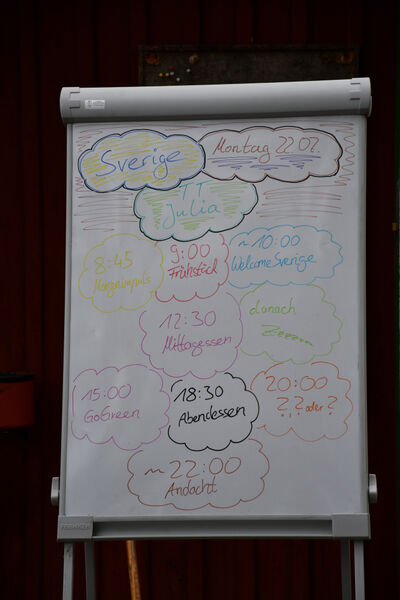 Sverige
Montag 22.07.
TT
Julia
8:45
Morgenimpuls
9:00
Frühstück
~ 10:00
Welcome Sverige
12:30
Mittagessen
danach
15:00
GoGreen
18:30
Abendessen
20:00
??oder?
~ 22:00
Andacht